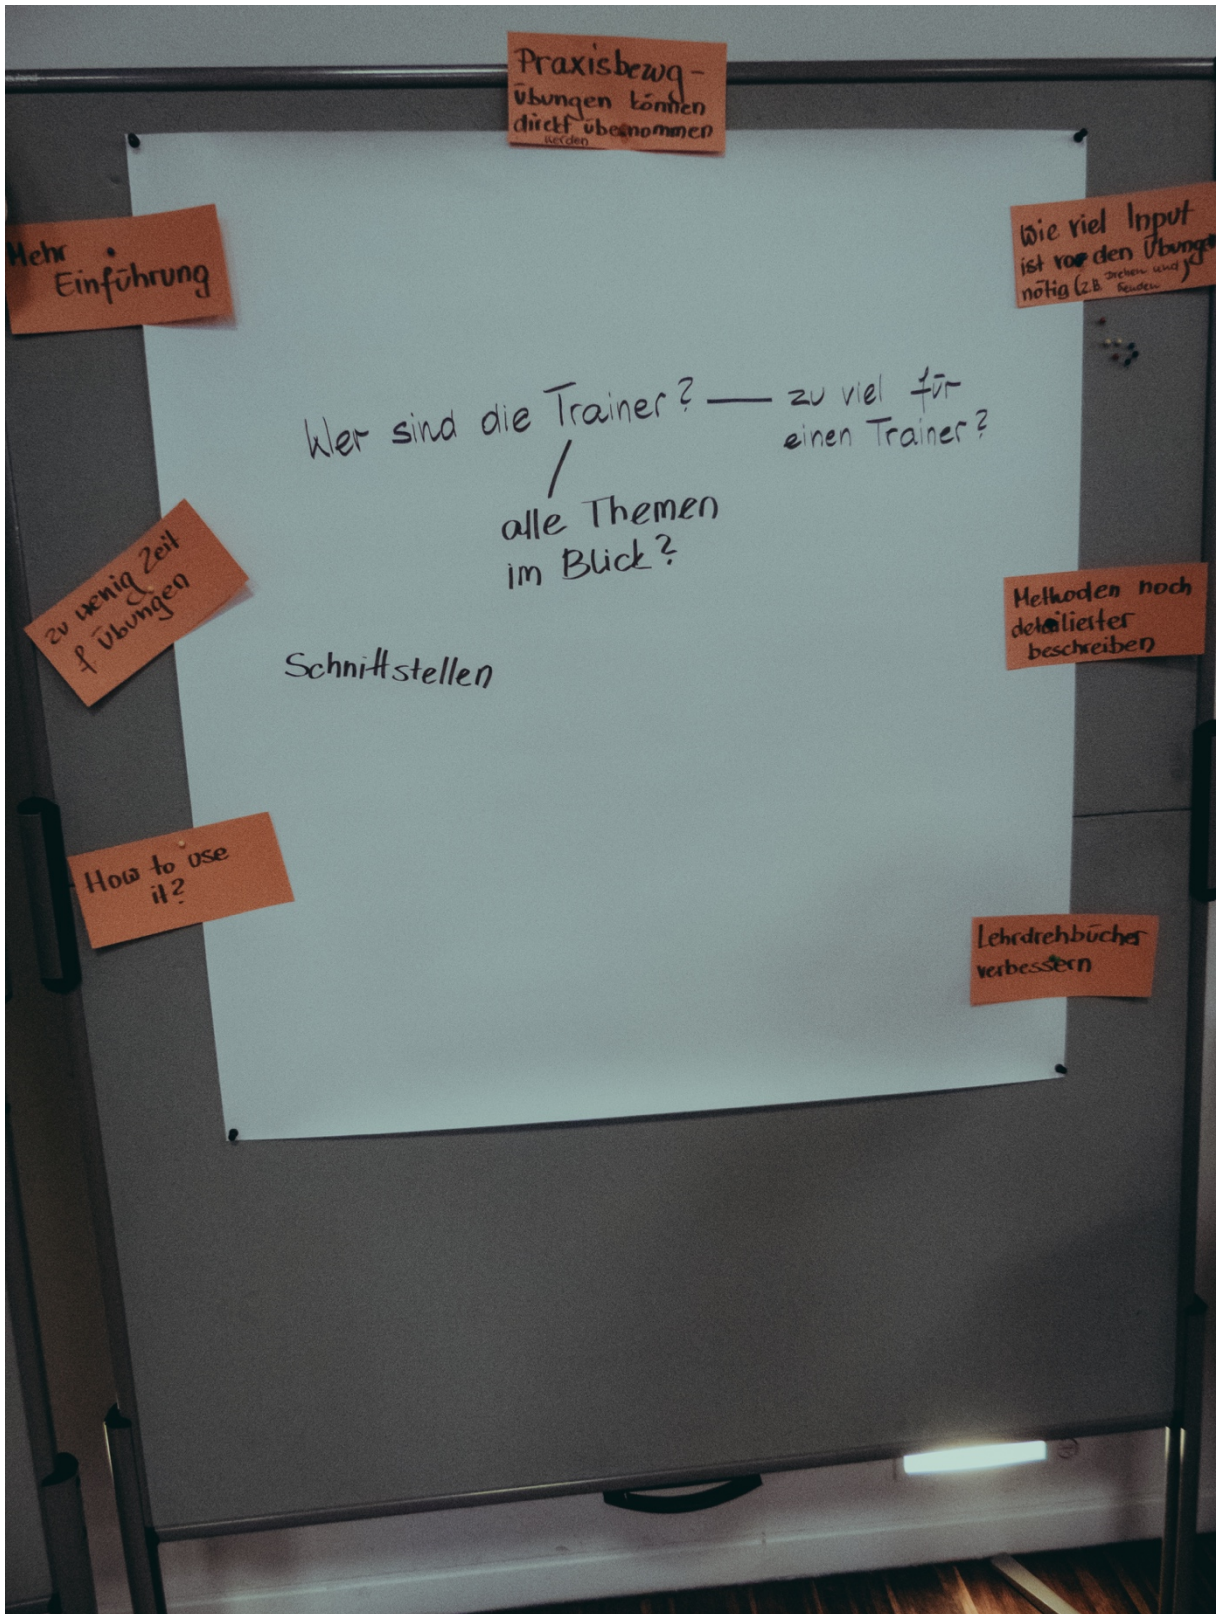 Praxisbezug -
Übungen können
direkt übernommen
werden
Mehr
Einführung
Wie viel Input
ist vor den Übungen
nötig (z.B. Drehen und)
Wer sind die Trainer? — zu viel für
einen Trainer?
alle Themen
im Blick?
zu wenig Zeit
f. Übungen
Methoden noch
detailierter
beschreiben
Schnittstellen
How to use
it?
Lehrdrehbücher
verbessern